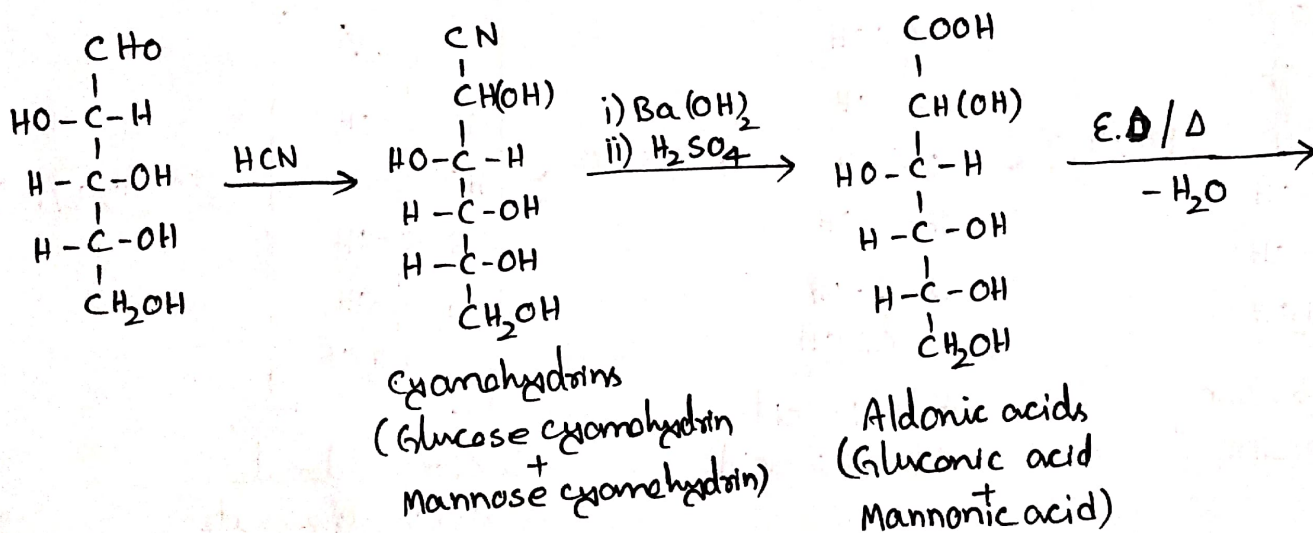 CHO
HO-C-H
H-C-OH
H-C-OH
CH₂OH
HCN
CN
CH(OH)
HO-C-H
H-C-OH
H-C-OH
CH₂OH
Cyanohydrins
(Glucose cyanohydrin
+
Mannose cyanohydrin)
i) Ba(OH)₂
ii) H₂SO₄
COOH
CH(OH)
HO-C-H
H-C-OH
H-C-OH
CH₂OH
Aldonic acids
(Gluconic acid
+
Mannonic acid)
E.D/Δ
-H₂O